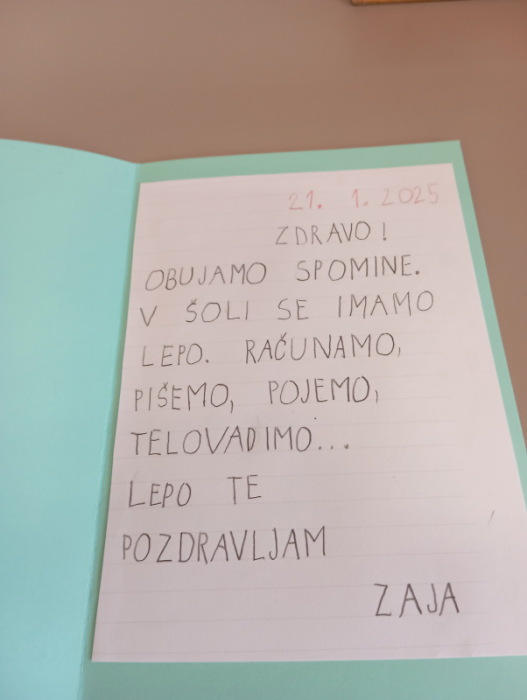 21. 1. 2025
ZDRAVO!
OBUJAMO SPOMINE.
V ŠOLI SE IMAMO
LEPO. RAČUNAMO,
PIŠEMO, POJEMO,
TELOVADIMO...
LEPO TE
POZDRAVLJAM
ZAJA